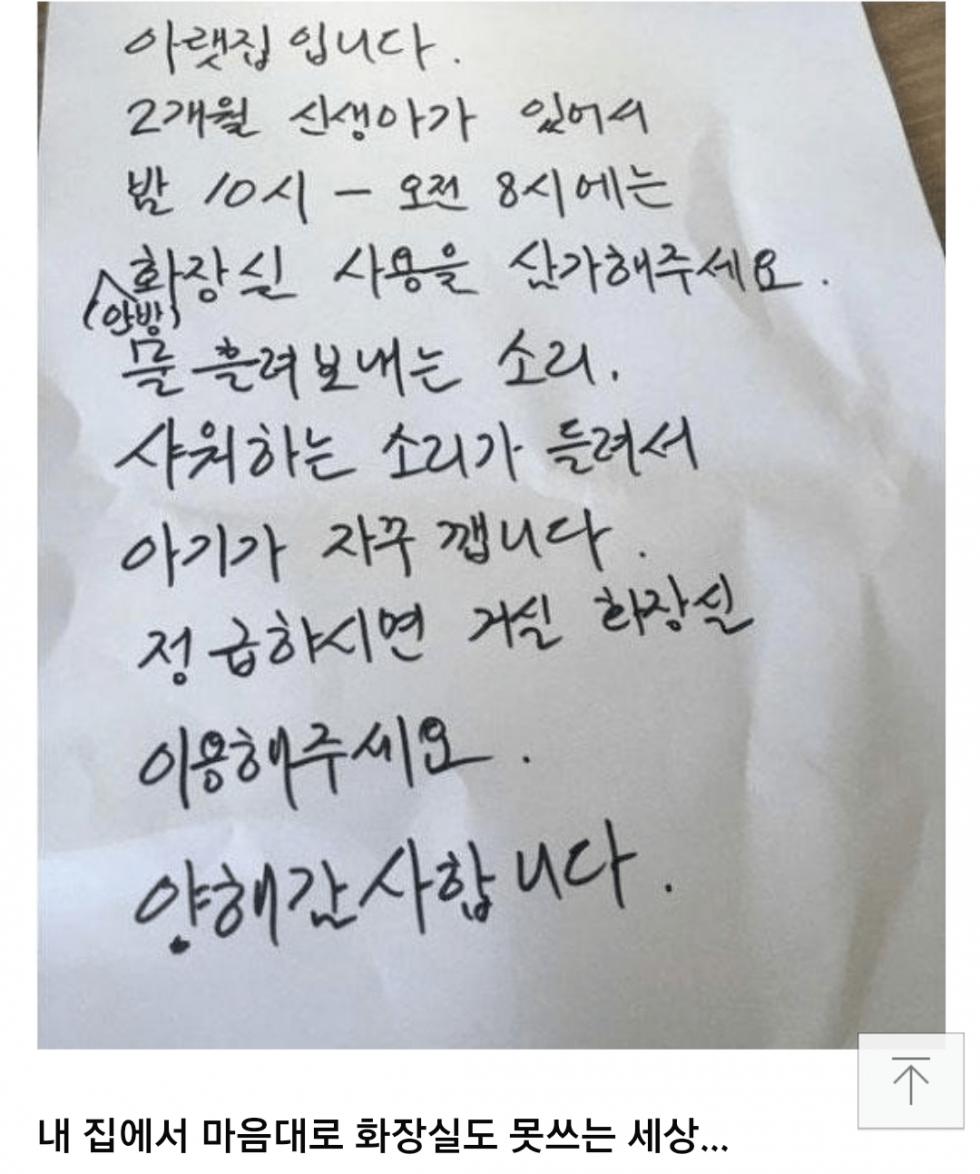 아랫집입니다.
2개월 신생아가 있어서
밤 10시 - 오전 8시에는
(안방) 화장실 사용을 삼가해주세요.
물 흘려보내는 소리.
샤워하는 소리가 들려서
아기가 자꾸 깹니다.
정 급하시면 거실 화장실
이용해주세요.
양해감사합니다.
내 집에서 마음대로 화장실도 못쓰는 세상...